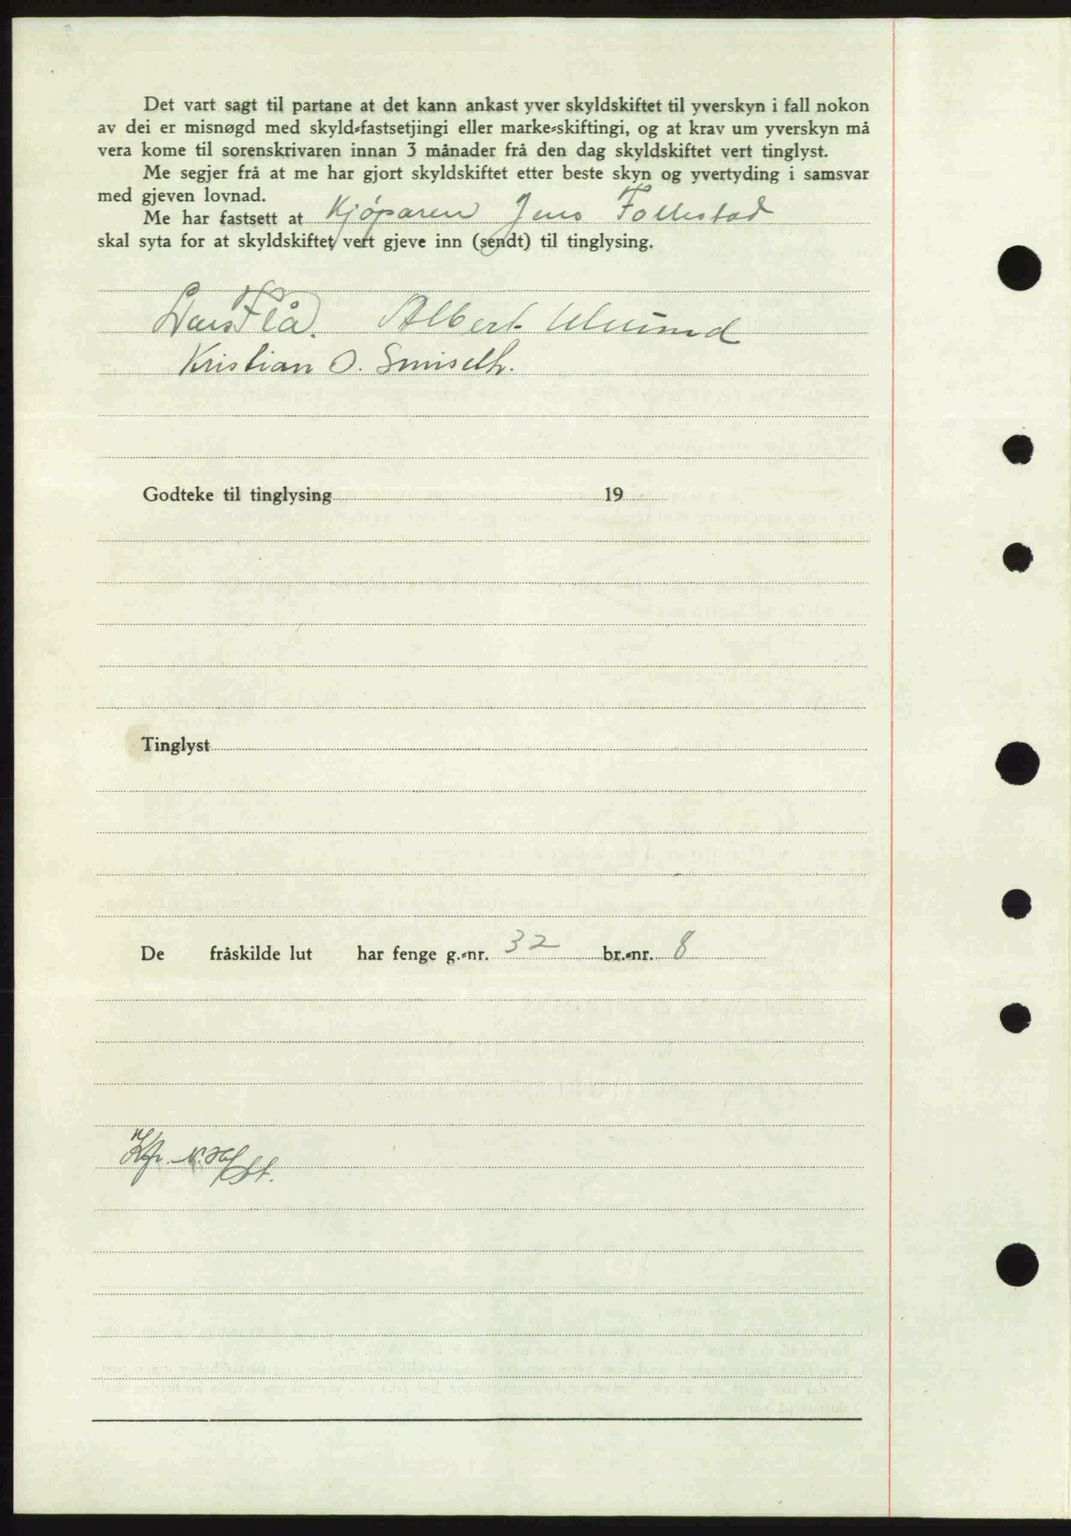 Det vart sagt til partane at det kann ankast yver skyldskiftet til yverskyn i fall nokon
av dei er misnøgd med skyld-fastsetjingi eller marke-skiftingi, og at krav um yverskyn må
vera kome til sorenskrivaren innan 3 månader frå den dag skyldskiftet vert tinglyst.
Me segjer frå at me har gjort skyldskiftet etter beste skyn og yvertyding i samsvar
med gjeven lovnad.
Me har fastsett at Kjøparen Jens Follestad
skal syta for at skyldskiftet vert gjeve inn (sendt) til tinglysing.
Lars Flå. Albert Ulvund
Kristian O.
Godteke til tinglysing 19
Tinglyst
De fråskilde lut har fenge g.-nr. 32 br.-nr. 8